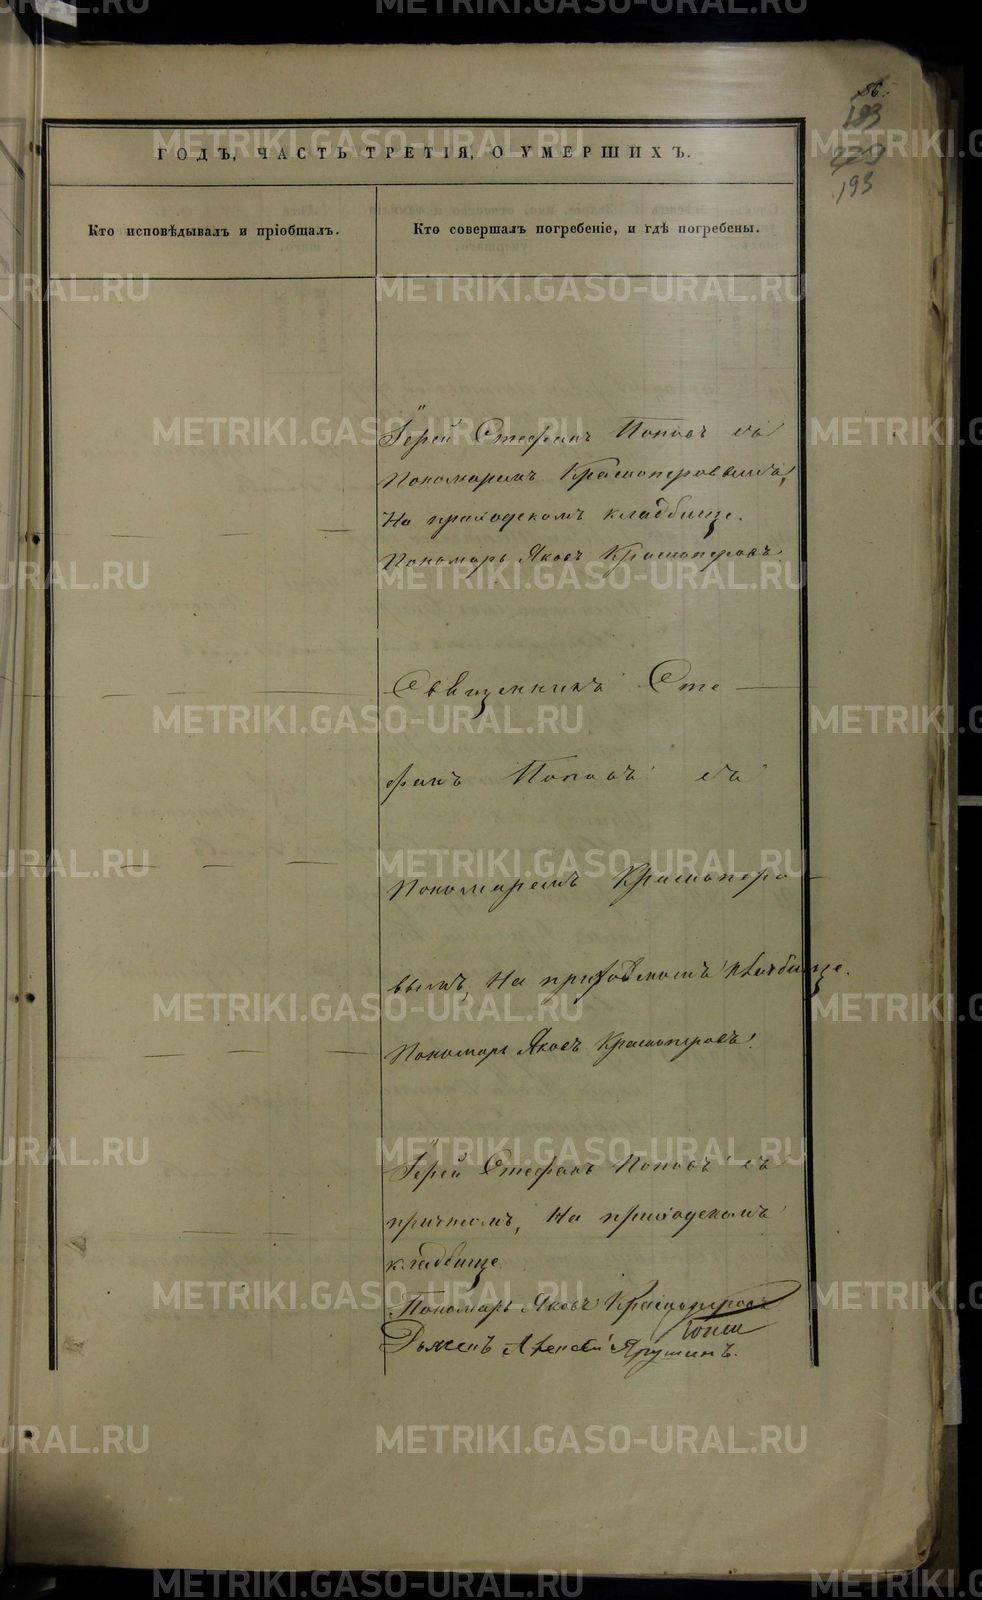 86.
193
193
ГОДЪ, ЧАСТЬ ТРЕТІЯ, О УМЕРШИХЪ.
Кто исповѣдывалъ и пріобщалъ.
Кто совершалъ погребеніе, и гдѣ погребены.
Іерей Стефанъ Поповъ съ
Пономаремъ Красноперовымъ,
На приходскомъ кладбище.
Пономарь Яковъ Красноперовъ
Священникъ Сте
фанъ Поповъ съ
Пономаремъ Красноперо
вымъ, На приходскомъ кладбище.
Пономарь Яковъ Красноперовъ.
Іерей Стефанъ Поповъ съ
причтомъ, На приходскомъ
кладбище
Пономарь Яковъ Красноперовъ
Дьяконъ Алексей Ярушинъ.
METRIKI.GASO-URAL.RU